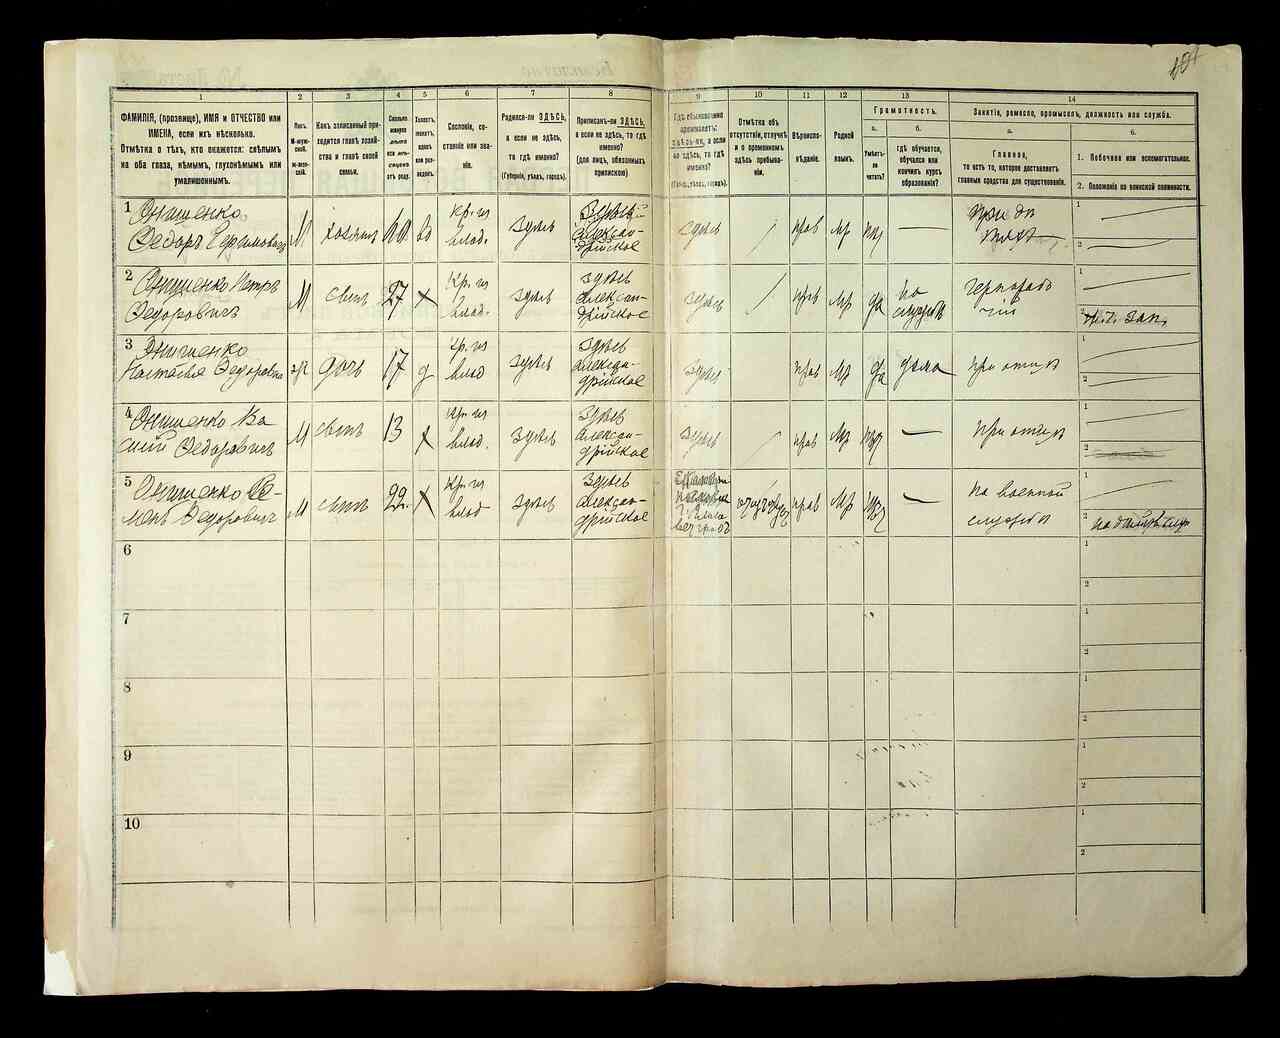 1 2 3 4 5 6 7 8 9 10 11 12 13 14
ФАМИЛІЯ, (прозвище), ИМЯ и ОТЧЕСТВО или
ИМЕНА, если ихъ нѣсколько.
Отмѣтка о тѣхъ, кто окажется: слѣпымъ
на оба глаза, нѣмымъ, глухонѣмымъ или
умалишоннымъ.
Полъ.
М-мужской.
Ж-женскій.
Какъ записанный при-
ходится главѣ хозяй-
ства и главѣ своей
семьи.
Сколько
минуло
лѣтъ
или мѣ-
сяцевъ
отъ роду.
Холостъ,
женатъ,
вдовъ
или раз-
веденъ.
Сословіе, со-
стояніе или зва-
ніе.
Родился-ли ЗДѢСЬ,
а если не здѣсь,
то гдѣ именно?
(Губернія, уѣздъ, городъ).
Приписанъ-ли ЗДѢСЬ,
а если не здѣсь, то гдѣ
именно?
(для лицъ, обязанных
припискою)
Гдѣ обыкновенно
проживаетъ:
здѣсь-ли, а если
не здѣсь, то гдѣ
именно?
(Губ., уѣздъ, городъ).
Отмѣтка объ
отсутствіи, отлучкѣ
и о временномъ
здѣсь пребыва-
ніи.
Вѣроиспо-
вѣданіе.
Родной
языкъ.
Грамотность.
а.
Умѣетъ-
ли
читать?
б.
гдѣ обучается,
обучался или
кончилъ курсъ
образованія?
Занятіе, ремесло, промыселъ, должность или служба.
а.
Главное,
то есть то, которое доставляетъ
главныя средства для существованія.
б.
1. Побочное или вспомогательное.
2. Положеніе по воинской повинности.
1 Онищенко
Ѳедоръ Герасимовичъ М хозяинъ 60 вд Кр. из влад. здѣсь
Здѣсь
Алексан-
дрійское
здѣсь прав мр нѣт
1
2
2 Онищенко Петръ
Ѳедоровичъ М сынъ 27 х Кр. из влад. здѣсь
Здѣсь
Алексан-
дрійское
здѣсь прав мр да
на
службѣ
чернорабо
чій
1
2 зап.
3 Онищенко
Настасья Ѳедоровна ж дочь 17 д Кр. из влад здѣсь
Здѣсь
Алексан-
дрійское
здѣсь прав мр да дома при отцѣ
1
2
4 Онищенко Ва
силій Ѳедоровичъ М сынъ 13 х Кр. из влад. здѣсь
Здѣсь
Алексан-
дрійское
здѣсь прав мр нѣт при отцѣ
1
2
5 Онищенко Се-
менъ Ѳедоровичъ М сынъ 22 х Кр. из влад здѣсь
Здѣсь
Алексан-
дрійское
прав мр нѣт
на военной
службѣ
1
2
6
1
2
7
1
2
8
1
2
9
1
2
10
1
2